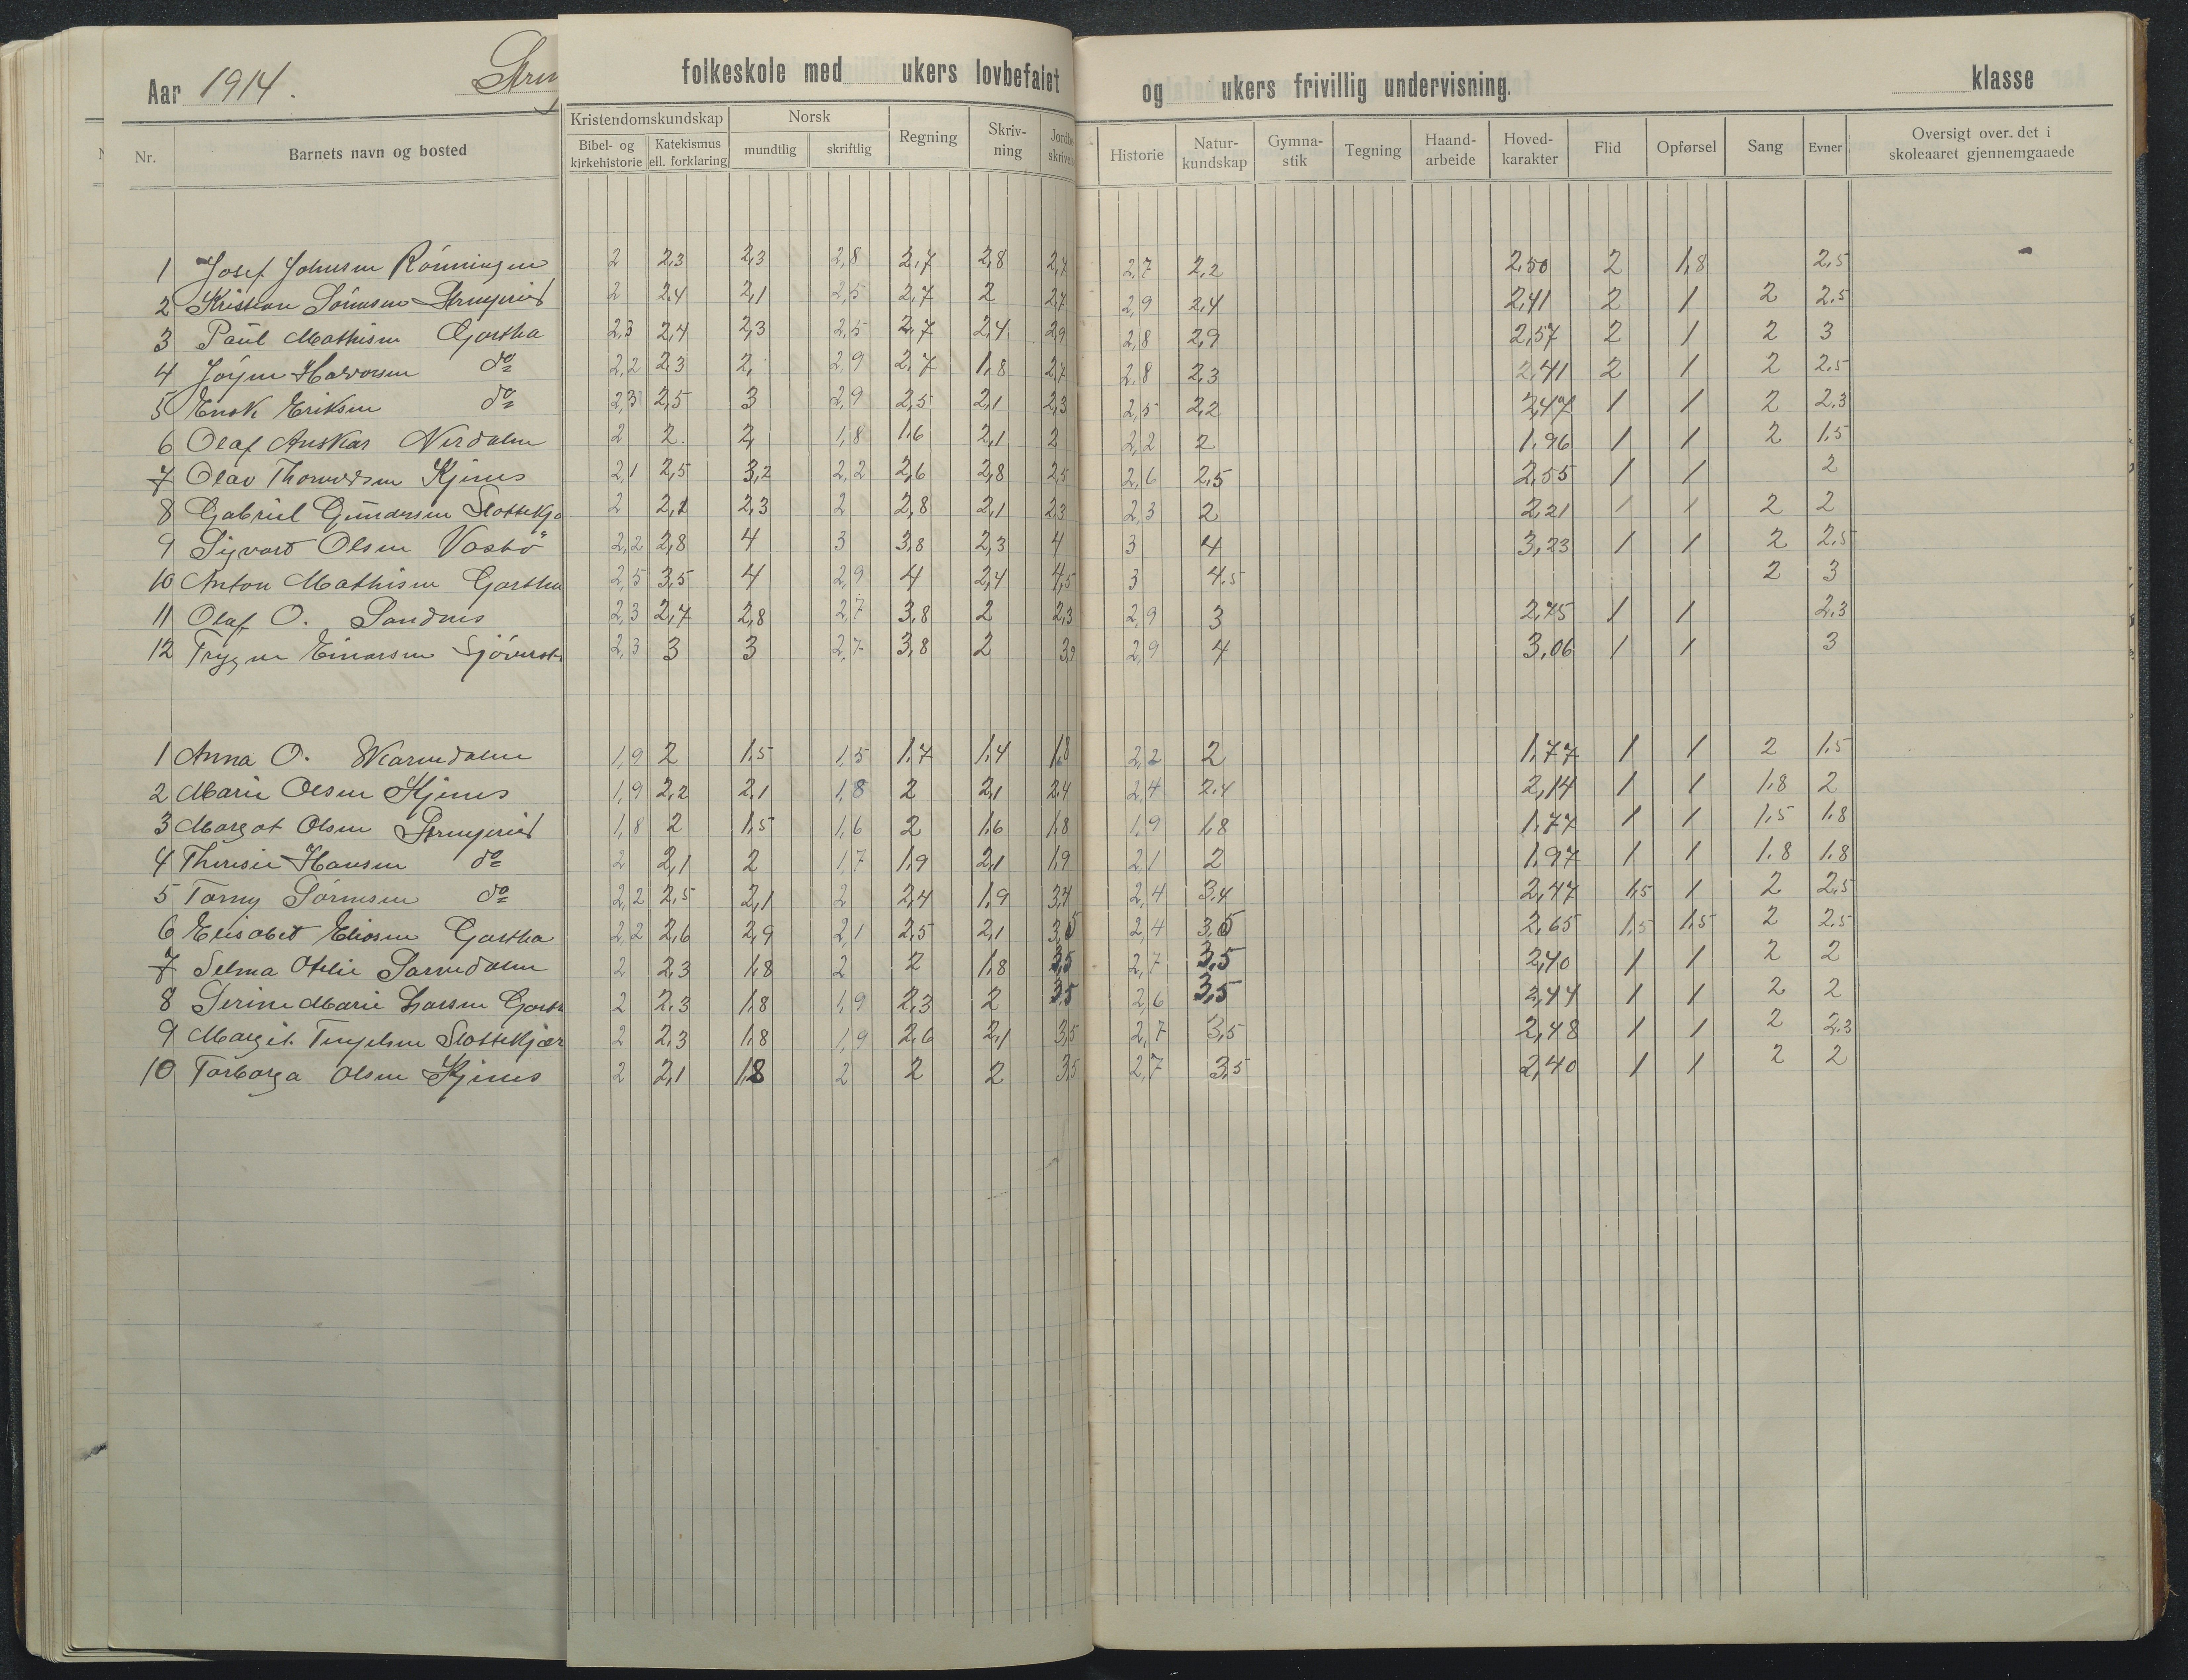 Aar 1914. folkeskole med ukers lovbefalet og ukers frivillig undervisning. klasse
Nr. Barnets navn og bosted Kristendomskundskap Bibel- og kirkehistorie Katekismus ell. forklaring Norsk mundtlig skriftlig Regning Skriv-ning Historie Natur-kundskap Gymna-stik Tegning Haand-arbeide Hoved-karakter Flid Opførsel Sang Evner Oversigt over det i skoleaaret gjennemgaaede
1 Josef Johnsen Rönningen 2 2,3 2,3 2,8 2,7 2,8 2,7 2,7 2,2 2,50 2 1,8 2,5
2 Kristian Sörensen 2 2,4 2,1 2,5 2,7 2 2,7 2,9 2,4 2,41 2 1 2 2,5
3 Paul Mathisen Gartha 2,3 2,4 2,3 2,5 2,7 2,4 2,9 2,8 2,9 2,57 2 1 2 3
4 Jörgen Halvorsen do 2,2 2,3 2, 2,9 2,7 1,8 2,7 2,8 2,3 2,41 2 1 2 2,5
5 Enok Eriksen do 2,3 2,5 3 2,9 2,5 2,1 2,3 2,5 2,2 2,47 1 1 2 2,3
6 Olaf Anskar Nerdalen 2 2 2, 1,8 1,6 2,1 2 2,2 2 1,96 1 1 2 1,5
7 Olav Kjenes 2,1 2,5 3,2 2,2 2,6 2,8 2,5 2,6 2,5 2,55 1 1 2
8 Gabriel Gundersen 2 2,1 2,3 2 2,8 2,1 2,3 2,3 2 2,21 1 1 2 2
9 Sigvard Olsen Vasbö 2,2 2,8 4 3 3,8 2,3 4 3 4 3,23 1 1 2 2,5
10 Anton Mathisen Gartha 2,5 3,5 4 2,9 4 2,4 4,5 3 4,5 2 3
11 Olaf O. Sandnes 2,3 2,7 2,8 2,7 3,8 2 2,3 2,9 3 2,75 1 1 2,3
12 Trygve Einarsen 2,3 3 3 2,7 3,8 2 3,9 2,9 4 3,06 1 1 3
1 Anna O. 1,9 2 1,5 1,5 1,7 1,4 1,8 2,2 2 1,77 1 1 2 1,5
2 Marie Olsen Kjenes 1,9 2,2 2,1 1,8 2 2,1 2,4 2,4 2,4 2,14 1 1 1,8 2
3 Margot Olsen 1,8 2 1,5 1,6 2 1,6 1,8 1,9 1,8 1,77 1 1 1,5 1,8
4 Theresie Hansen do 2 2,1 2 1,7 1,9 2,1 1,9 2,1 2 1,97 1 1 1,8 1,8
5 Torny Sörensen do 2,2 2,5 2,1 2 2,4 1,9 3,4 2,4 3,4 2,47 1,5 1 2 2,5
6 Elisabet Eliasen Gartha 2,2 2,6 2,9 2,1 2,5 2,1 2,4 2,65 1,5 1,5 2 2,5
7 Selma Otelie 2 2,3 1,8 2 2 1,8 3,5 2,7 3,5 2,40 1 1 2 2
8 Serine Marie Larsen 2 2,3 1,8 1,9 2,3 2 3,5 2,6 3,5 2,44 1 1 2 2
9 Margit 2 2,3 1,8 1,9 2,6 2,1 3,5 2,7 3,5 2,48 1 1 2 2,3
10 Torborga Olsen Kjenes 2 2,1 1,8 2 2 2 3,5 2,7 3,5 2,40 1 1 2 2